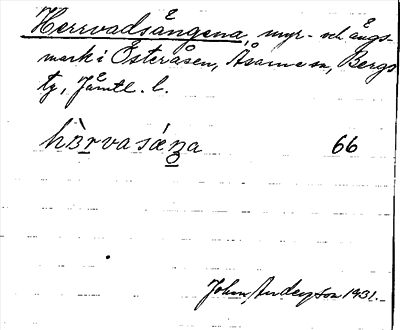 Herrvadsängena, myr- och ängs-
mark i Österåsen, Åsarne sn, Bergs
tg, Jämtl. l.
66
John Anderson 1931.